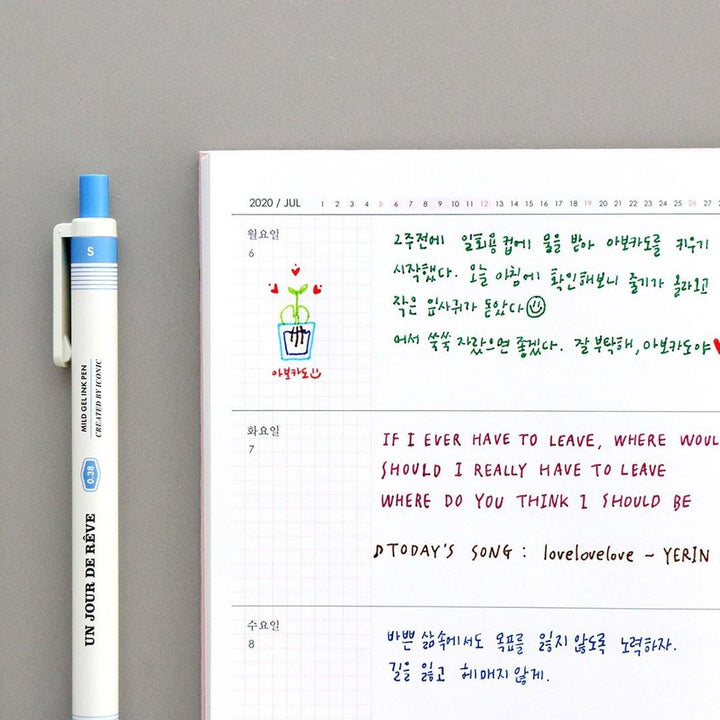 S
MILD GEL INK PEN
CREATED BY ICONIC
0.38
UN JOUR DE RÊVE
2020 / JUL 1 2 3 4 5 6 7 8 9 10 11 12 13 14 15 16 17 18 19 20 21 22 23 24 25 26 27
월요일
6
2주전에 일회용컵에 물을 받아 아보카도를 키우기
시작했다. 오늘 아침에 확인해보니 줄기가 올라오고
작은 잎사귀가 돋았다
어서 쑥쑥 자랐으면 좋겠다. 잘 부탁해, 아보카도야
아보카도
화요일
7
IF I EVER HAVE TO LEAVE, WHERE WOUL
SHOULD I REALLY HAVE TO LEAVE
WHERE DO YOU THINK I SHOULD BE
♪TODAY'S SONG : lovelovelove ~ YERIN
수요일
8
바쁜 삶속에서도 목표를 잃지 않도록 노력하자.
길을 잃고 헤매지 않게.